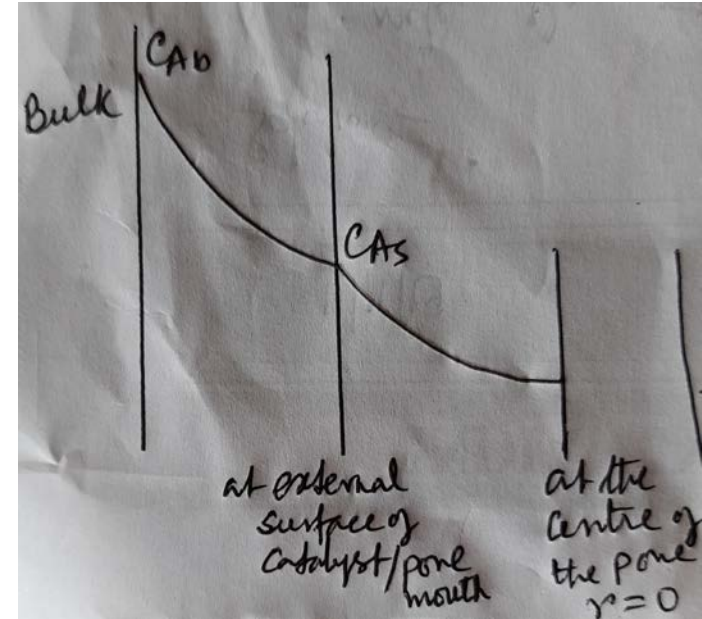 CAb
Bulk
CAs
at external
surface of
Catalyst/pore
mouth
at the
centre of
the pore
r=0